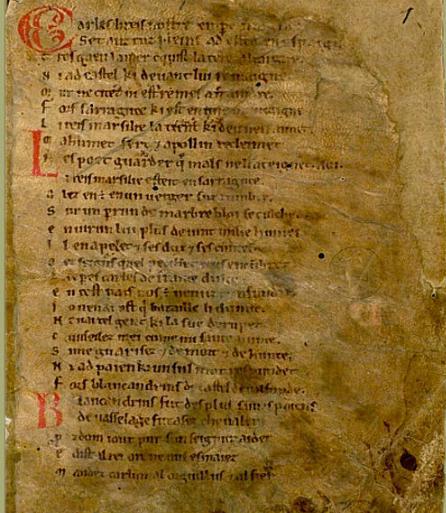 Carles li reis nostre emperere
Set anz tuz pleins ad estet en espaigne
Tresquen la mer cunquist la tere altaigne
N i ad castel ki devant lui remaigne
Mur ne citet ni est remes a fraindre
Fors sarraguce ki est en une muntaigne
Li reis marsilie la tient ki deu nenaimet
Mahumet sert ⁊ apollin recleimet
Nes poet guarder que mals ne li ateignet. aoi
Li reis marsilie esteit en sarraguce.
Alez en est en un verger suz lumbre.
Sur un perrun de marbre bloi se culchet
Envirun lui plus de vint milie humes
Il en apelet ⁊ ses dux ⁊ ses cuntes
quel pecchet nus encumbret
carles de france dulce
En cest pais nos est venuz cunfundre
Jo nen ai ost qui bataille li dunne.
Nen ai tel gent ki la sue derumpet
Cunseilez mei cume mi saive hume.
Si me guarisez ⁊ de mort ⁊ de hunte.
N i ad paien ki un sul mot respundet
Fors blancandrins de castel de valfunde.
Blancandrins fut des plus saives paiens
De vasselage fut asez chevaler
Prodom i out pur sun seignur aider
E dist al rei or ne vus esmaiez
Mandez carlun al orguillus ⁊ al fier